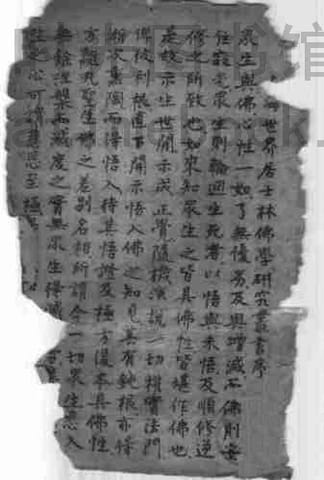 海世界居士林佛學研究叢書序
眾生與佛心性一如了無優劣及與增減而佛則安
住寂光眾生則輪迴生死者以悟與未悟及順修逆
修之所致也如來知眾生之皆具佛性皆堪作佛也
是故示生世間示成正覺隨機演說一切權實法門
俾彼利根直下開示悟入佛之知見其有鈍根亦得
漸次熏陶而得悟入待其悟證及極方復本具佛性
方離生佛之差別名相所謂令一切眾生悉入
無餘涅槃而滅度之實無眾生得滅
生之心可謂慈悲至極